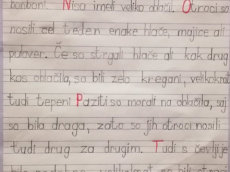 bonboni. Niso imeli veliko oblačil. Otroci so
nosili cel teden enake hlače, majice ali
pulover. Če so strgali hlače ali kak drug
kos oblačila, so bili zelo kregani, velikokrat
tudi tepeni. Paziti so morali na oblačila, saj
so bila draga, zato so jih otroci nosili
tudi drug za drugim. Tudi s čevlji je